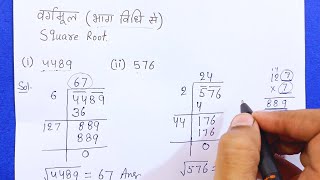 वर्गमूल (भाग विधि से)
Square Root.
(i) 4489 (ii) 576
Sol.
67
6 4489
36
127 889
889
0
√4489 = 67 Ans
24
2 576
4
44 176
176
0
√576 =
12 7
× 7
889